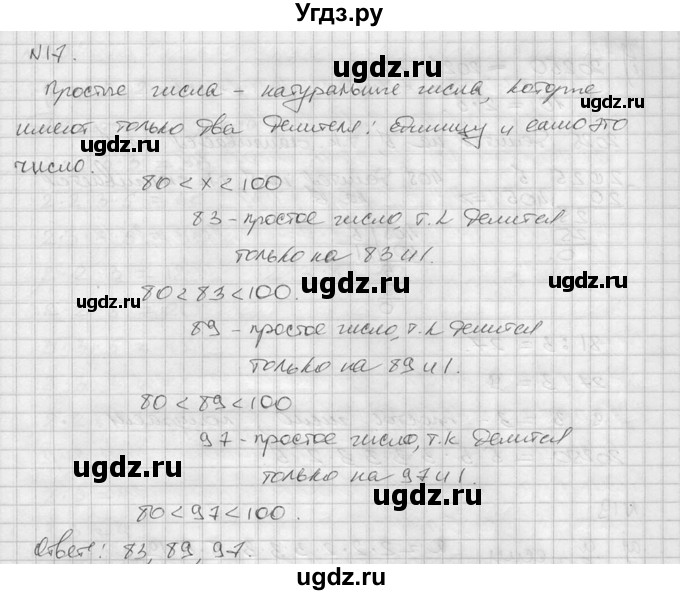 Угдз.ру
N17.
Простые числа – натуральные числа, которые
имеют только два делителя: единицу и само это
число.
80 < x < 100
83 – простое число, т.к делится
только на 83 и 1.
80 < 83 < 100.
89 – простое число, т.к делится
только на 89 и 1.
80 < 89 < 100
97 – простое число, т.к делится
только на 97 и 1.
80 < 97 < 100.
Ответ: 83, 89, 97.
ugdz.ru
ugdz.ru
ugdz.ru
ugdz.ru
ugdz.ru
ugdz.ru
ugdz.ru
ugdz.ru
ugdz.ru
ugdz.ru
ugdz.ru
ugdz.ru